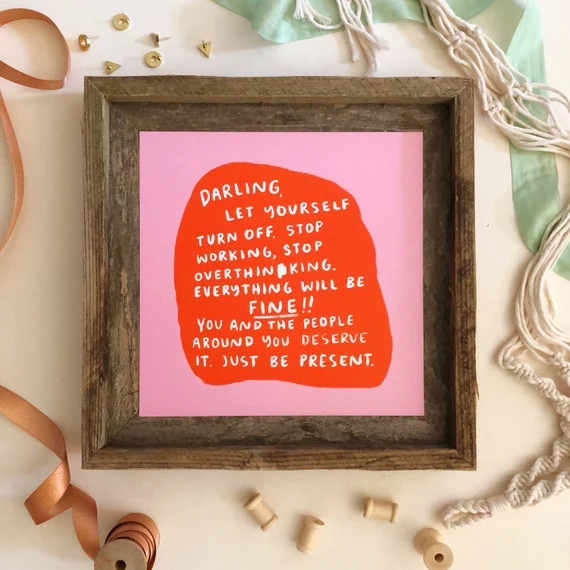 DARLING,
LET YOURSELF
TURN OFF. STOP
WORKING, STOP
OVERTHINKING.
EVERYTHING WILL BE
FINE!!
YOU AND THE PEOPLE
AROUND YOU DESERVE
IT. JUST BE PRESENT.